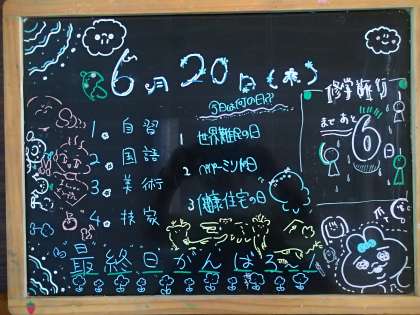 6月20日(木)
今日は何の日??
1. 自習
2. 国語
3. 美術
4. 技家
1 世界難民の日
2 ペパーミントの日
3 健康住宅の日
修学旅行
まであと
6日
最終日がんばろ〜!